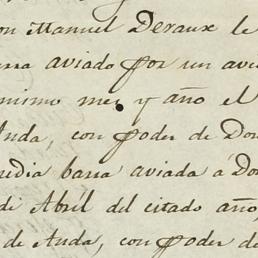 on Manuel Deraux le
arra aviado por un avi
mismo mes y año el
Anda, con poder de Don
media barra aviada á Do
di Abril del citado año,
de Anda, con poder de